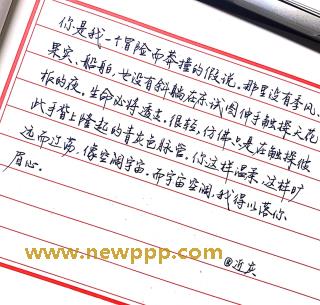 你是我一个冒险而莽撞的假说。那里没有季风、
果实、船舶，也没有斜躺在床试图伸手触摸天花
板的夜。生命必将透支。很轻，仿佛只是在触摸彼
此手背上隆起的青灰色脉管。你这样温柔，这样旷
远而辽荡，像空阔宇宙。而宇宙空阔，我得以落你
眉心。
www.newppp.com